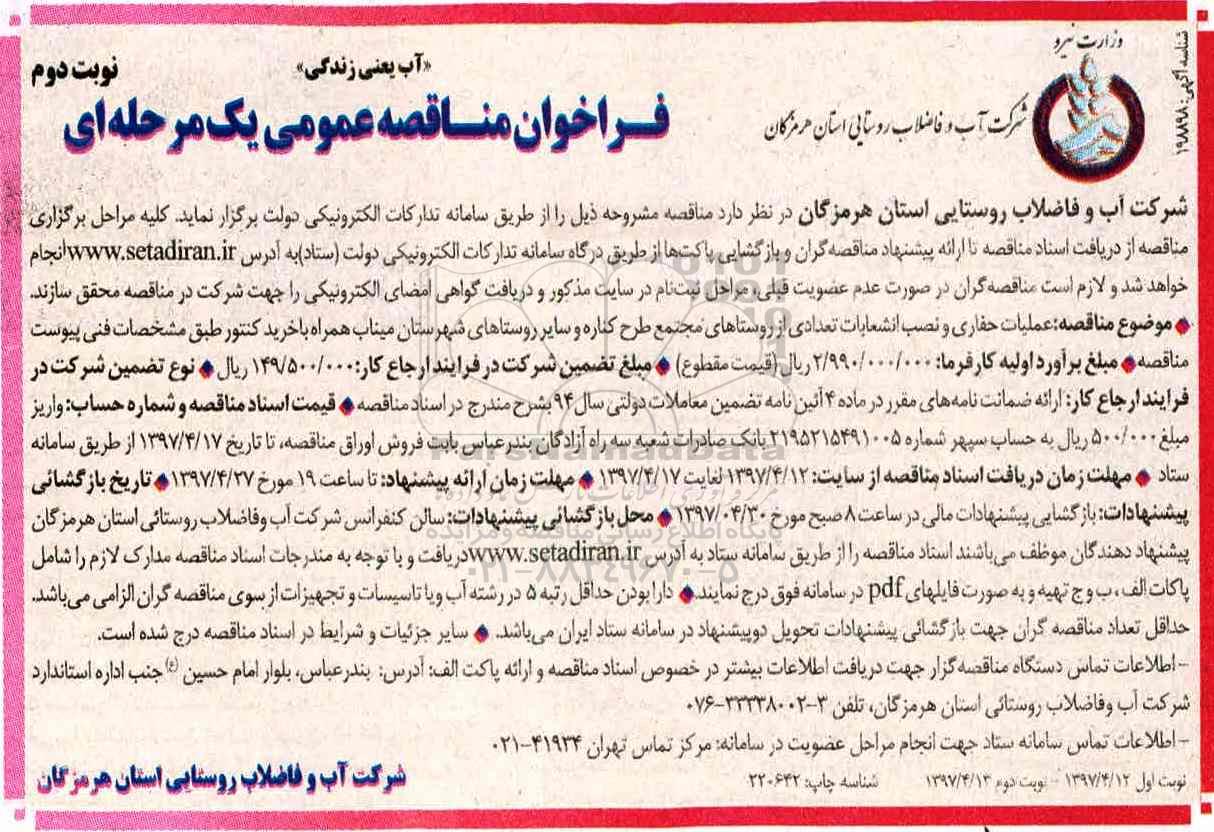 وزارت نیرو
شرکت آب و فاضلاب روستایی استان هرمزگان
شناسه آگهی: ۱۹۸۸۹۸
«آب یعنی زندگی»
نوبت دوم
فراخوان مناقصه عمومی یک مرحله‌ای
شرکت آب و فاضلاب روستایی استان هرمزگان در نظر دارد مناقصه مشروحه ذیل را از طریق سامانه تدارکات الکترونیکی دولت برگزار نماید. کلیه مراحل برگزاری
مناقصه از دریافت اسناد مناقصه تا ارائه پیشنهاد مناقصه‌گران و بازگشایی پاکت‌ها از طریق درگاه سامانه تدارکات الکترونیکی دولت (ستاد) به آدرس www.setadiran.ir انجام
خواهد شد و لازم است مناقصه‌گران در صورت عدم عضویت قبلی، مراحل ثبت‌نام در سایت مذکور و دریافت گواهی امضای الکترونیکی را جهت شرکت در مناقصه محقق سازند.
موضوع مناقصه: عملیات حفاری و نصب انشعابات تعدادی از روستاهای مجتمع طرح کناره و سایر روستاهای شهرستان میناب همراه با خرید کنتور طبق مشخصات فنی پیوست
مناقصه مبلغ برآورد اولیه کارفرما: ۲/۹۹۰/۰۰۰/۰۰۰ ریال (قیمت مقطوع) مبلغ تضمین شرکت در فرایند ارجاع کار: ۱۴۹/۵۰۰/۰۰۰ ریال نوع تضمین شرکت در
فرایند ارجاع کار: ارائه ضمانت نامه‌های مقرر در ماده ۴ آئین نامه تضمین معاملات دولتی سال ۹۴ بشرح مندرج در اسناد مناقصه قیمت اسناد مناقصه و شماره حساب: واریز
مبلغ ۵۰۰/۰۰۰ ریال به حساب سپهر شماره ۲۱۹۵۲۱۵۴۹۱۰۰۵ بانک صادرات شعبه سه راه آزادگان بندرعباس بابت فروش اوراق مناقصه، تا تاریخ ۱۳۹۷/۴/۱۷ از طریق سامانه
ستاد مهلت زمان دریافت اسناد مناقصه از سایت: ۱۳۹۷/۴/۱۲ لغایت ۱۳۹۷/۴/۱۷ مهلت زمان ارائه پیشنهاد: تا ساعت ۱۹ مورخ ۱۳۹۷/۴/۲۷ تاریخ بازگشائی
پیشنهادات: بازگشایی پیشنهادات مالی در ساعت ۸ صبح مورخ ۱۳۹۷/۰۴/۳۰ محل بازگشائی پیشنهادات: سالن کنفرانس شرکت آب وفاضلاب روستائی استان هرمزگان
پیشنهاد دهندگان موظف می‌باشند اسناد مناقصه را از طریق سامانه ستاد به آدرس www.setadiran.ir دریافت و با توجه به مندرجات اسناد مناقصه مدارک لازم را شامل
پاکات الف، ب و ج تهیه و به صورت فایلهای pdf در سامانه فوق درج نمایند. دارا بودن حداقل رتبه ۵ در رشته آب ویا تاسیسات و تجهیزات از سوی مناقصه گران الزامی می‌باشد.
حداقل تعداد مناقصه گران جهت بازگشائی پیشنهادات تحویل دوپیشنهاد در سامانه ستاد ایران می‌باشد. سایر جزئیات و شرایط در اسناد مناقصه درج شده است.
- اطلاعات تماس دستگاه مناقصه‌گزار جهت دریافت اطلاعات بیشتر در خصوص اسناد مناقصه و ارائه پاکت الف: آدرس: بندرعباس، بلوار امام حسین (ع) جنب اداره استاندارد
شرکت آب وفاضلاب روستائی استان هرمزگان، تلفن ۳-۳۳۳۳۸۰۰۲-۰۷۶
- اطلاعات تماس سامانه ستاد جهت انجام مراحل عضویت در سامانه: مرکز تماس تهران ۴۱۹۳۴-۰۲۱
نوبت اول ۱۳۹۷/۴/۱۲ - نوبت دوم ۱۳۹۷/۴/۱۳ شناسه چاپ: ۲۲۰۶۴۲
شرکت آب و فاضلاب روستایی استان هرمزگان
ParsNamadData
پایگاه اطلاع رسانی مناقصه و مزایده
۰۲۱-۸۸۳۴۹۶۷۰-۵